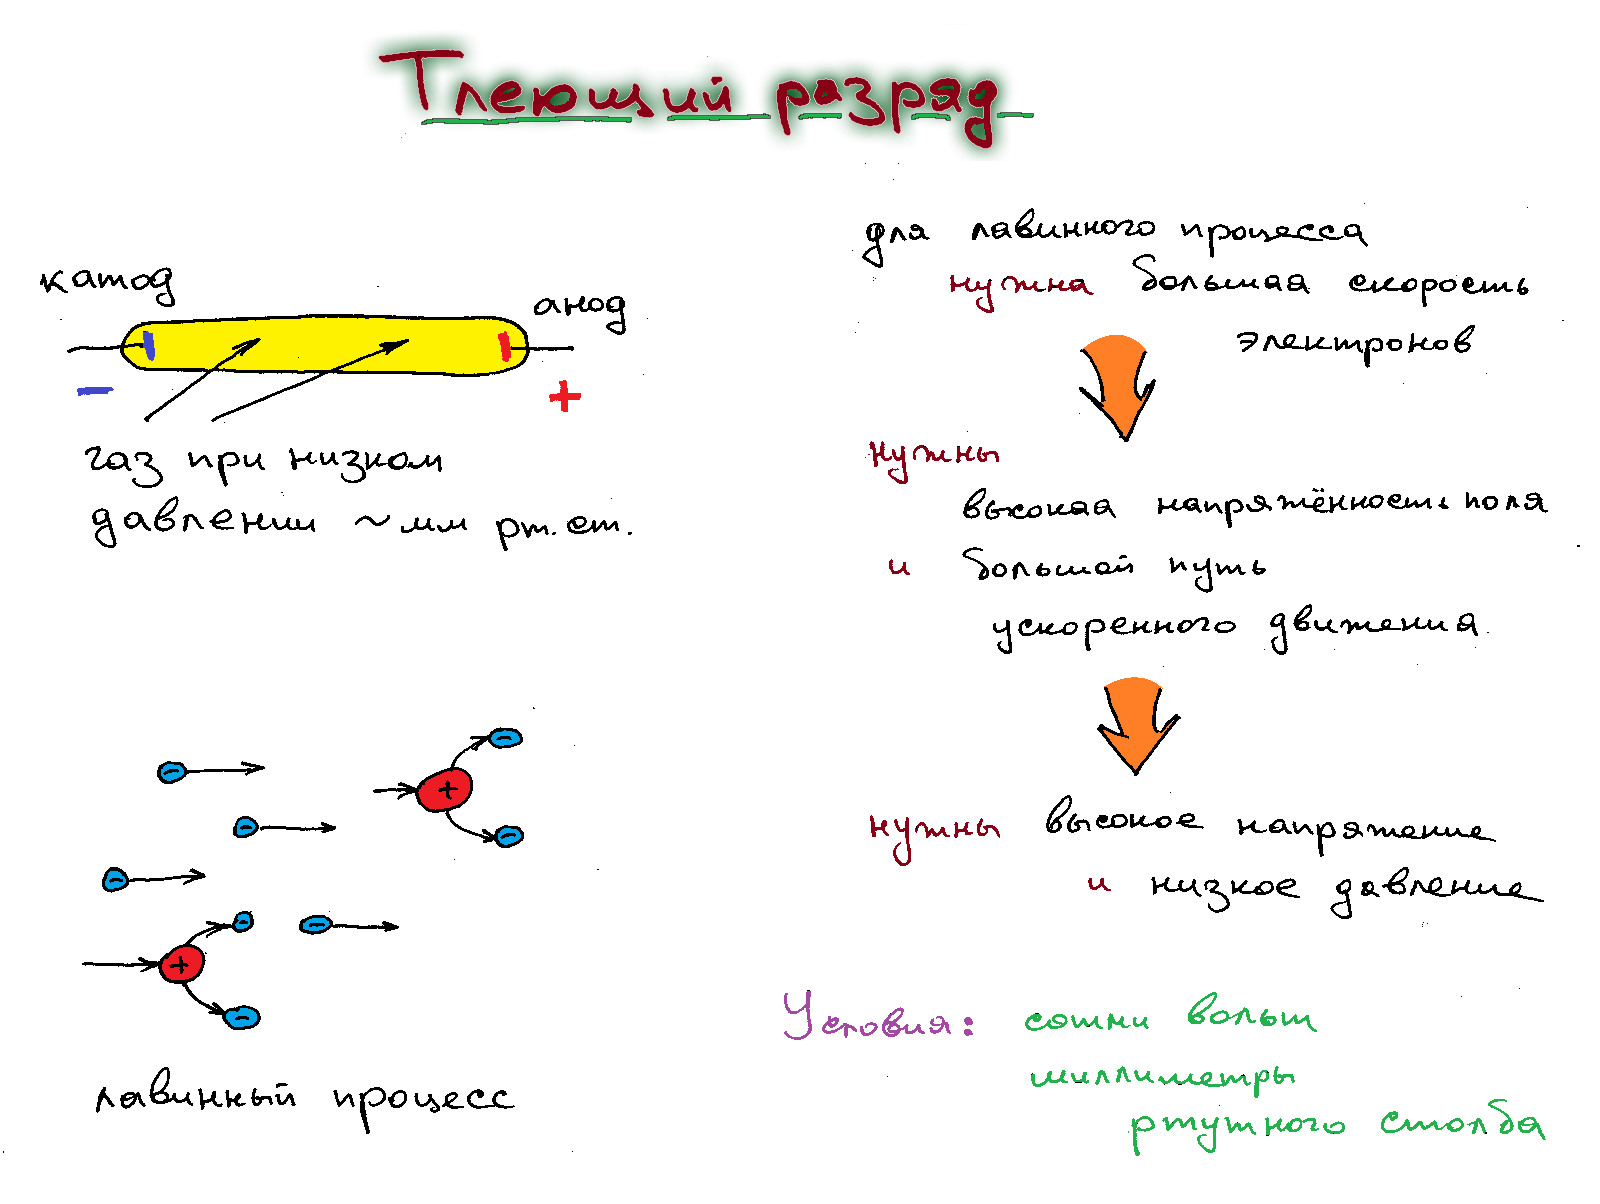 Тлеющий разряд
катод
анод
−
+
газ при низком
давлении ~ мм рт. ст.
−
−
−
−
−
−
−
−
+
+
лавинный процесс
для лавинного процесса
нужна большая скорость
электронов
нужны
высокая напряжённость поля
и большой путь
ускоренного движения
нужны высокое напряжение
и низкое давление
Условия: сотни вольт
миллиметры
ртутного столба